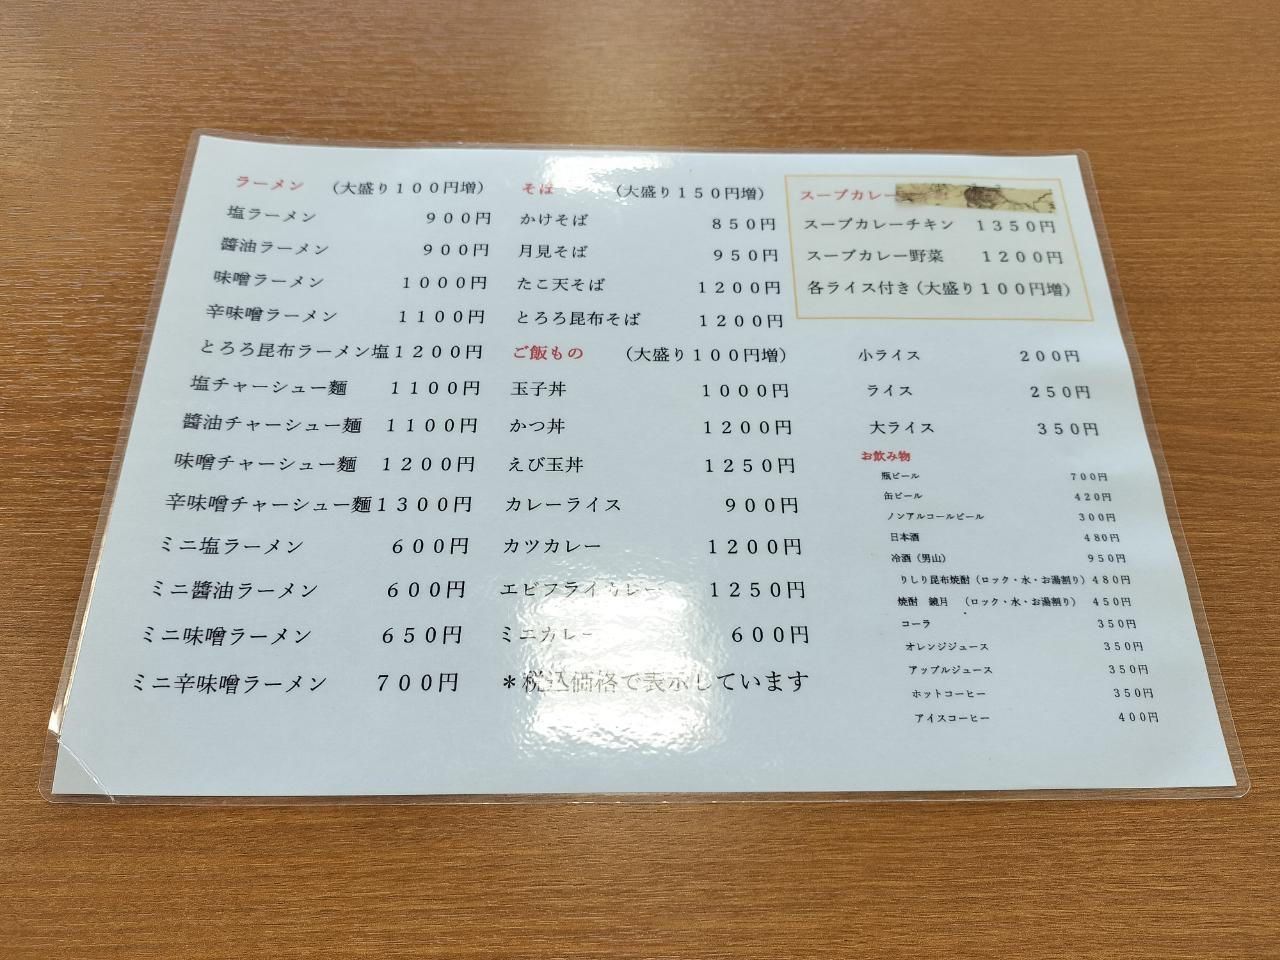 ラーメン （大盛り１００円増）
塩ラーメン ９００円
醬油ラーメン ９００円
味噌ラーメン １０００円
辛味噌ラーメン １１００円
とろろ昆布ラーメン塩１２００円
塩チャーシュー麺 １１００円
醬油チャーシュー麺 １１００円
味噌チャーシュー麺 １２００円
辛味噌チャーシュー麺１３００円
ミニ塩ラーメン ６００円
ミニ醬油ラーメン ６００円
ミニ味噌ラーメン ６５０円
ミニ辛味噌ラーメン ７００円
そば （大盛り１５０円増）
かけそば ８５０円
月見そば ９５０円
たこ天そば １２００円
とろろ昆布そば １２００円
ご飯もの （大盛り１００円増）
玉子丼 １０００円
かつ丼 １２００円
えび玉丼 １２５０円
カレーライス ９００円
カツカレー １２００円
エビフライカレー １２５０円
ミニカレー ６００円
＊税込価格で表示しています
スープカレー
スープカレーチキン １３５０円
スープカレー野菜 １２００円
各ライス付き（大盛り１００円増）
小ライス ２００円
ライス ２５０円
大ライス ３５０円
お飲み物
瓶ビール ７００円
缶ビール ４２０円
ノンアルコールビール ３００円
日本酒 ４８０円
冷酒（男山） ９５０円
りしり昆布焼酎（ロック・水・お湯割り）４８０円
焼酎 鏡月 （ロック・水・お湯割り） ４５０円
コーラ ３５０円
オレンジジュース ３５０円
アップルジュース ３５０円
ホットコーヒー ３５０円
アイスコーヒー ４００円